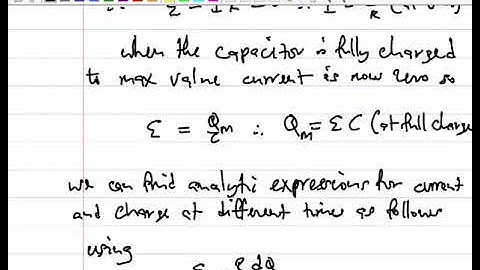 ε - IR = 0 ∴ I = ε/R (at t=0)
when the capacitor is fully charged
to max value current is now zero so
ε = Qm/C ∴ QM = εC (at full charge
we can find analytic expressions for current
and charge at different times as follows
using
dQ